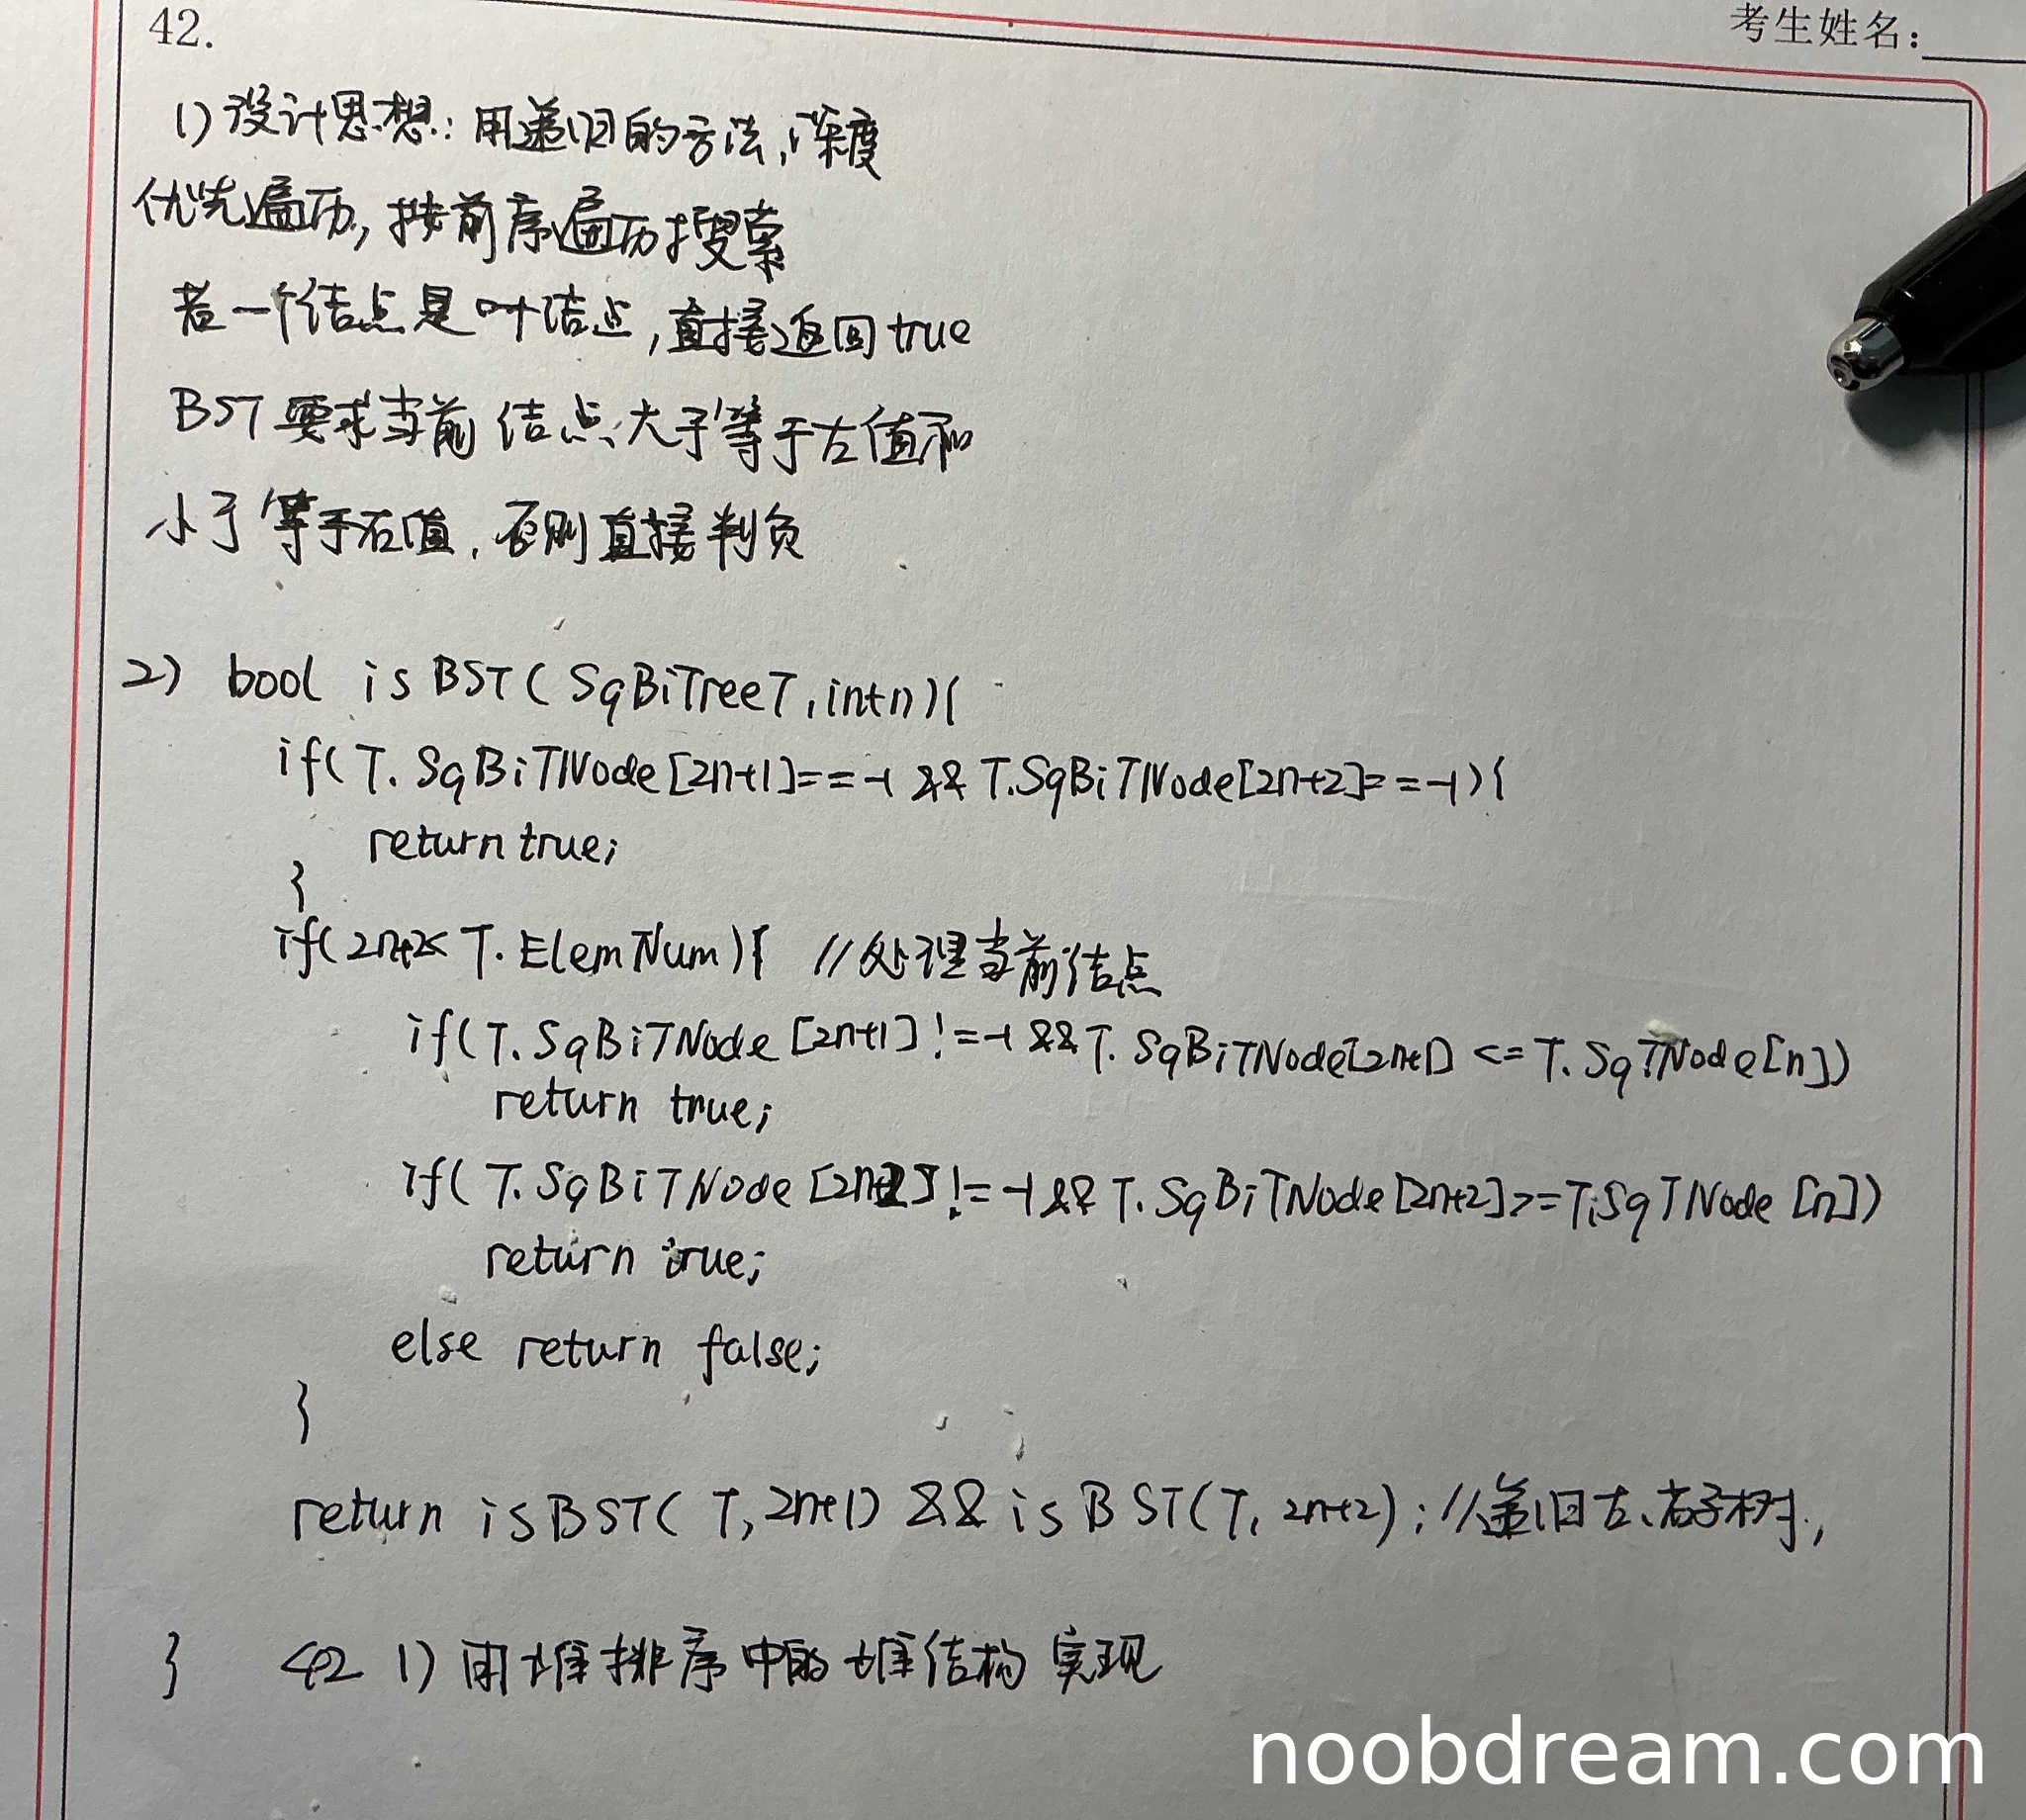 42.
考生姓名:
1) 设计思想: 用递归的方法, 深度
优先遍历, 按前序遍历搜索
若一个结点是叶结点, 直接返回true
BST 要求当前结点大于等于左值和
小于等于右值, 否则直接判负
2) bool isBST( SqBiTree T, int n){
if( T. SqBiTNode[2n+1]==-1 && T.SqBiTNode[2n+2]==-1){
return true;
}
if(2n+2< T. ElemNum){ //处理当前结点
if( T. SqBiTNode [2n+1] !=-1 && T. SqBiTNode[2n+1] <= T. SqTNode[n])
return true;
if( T. SqBiTNode [2n+2] !=-1 && T. SqBiTNode[2n+2]>=T.SqTNode [n])
return true;
else return false;
}
return isBST( T, 2n+1) && isBST(T, 2n+2); //递归左、右子树,
} 42 1) 用堆排序中的堆结构实现
noobdream.com